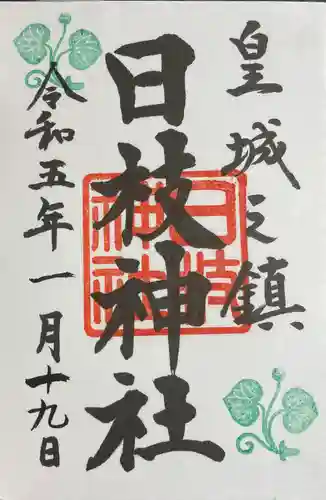 皇城之鎮
日枝神社
令和五年一月十九日
日枝
神社